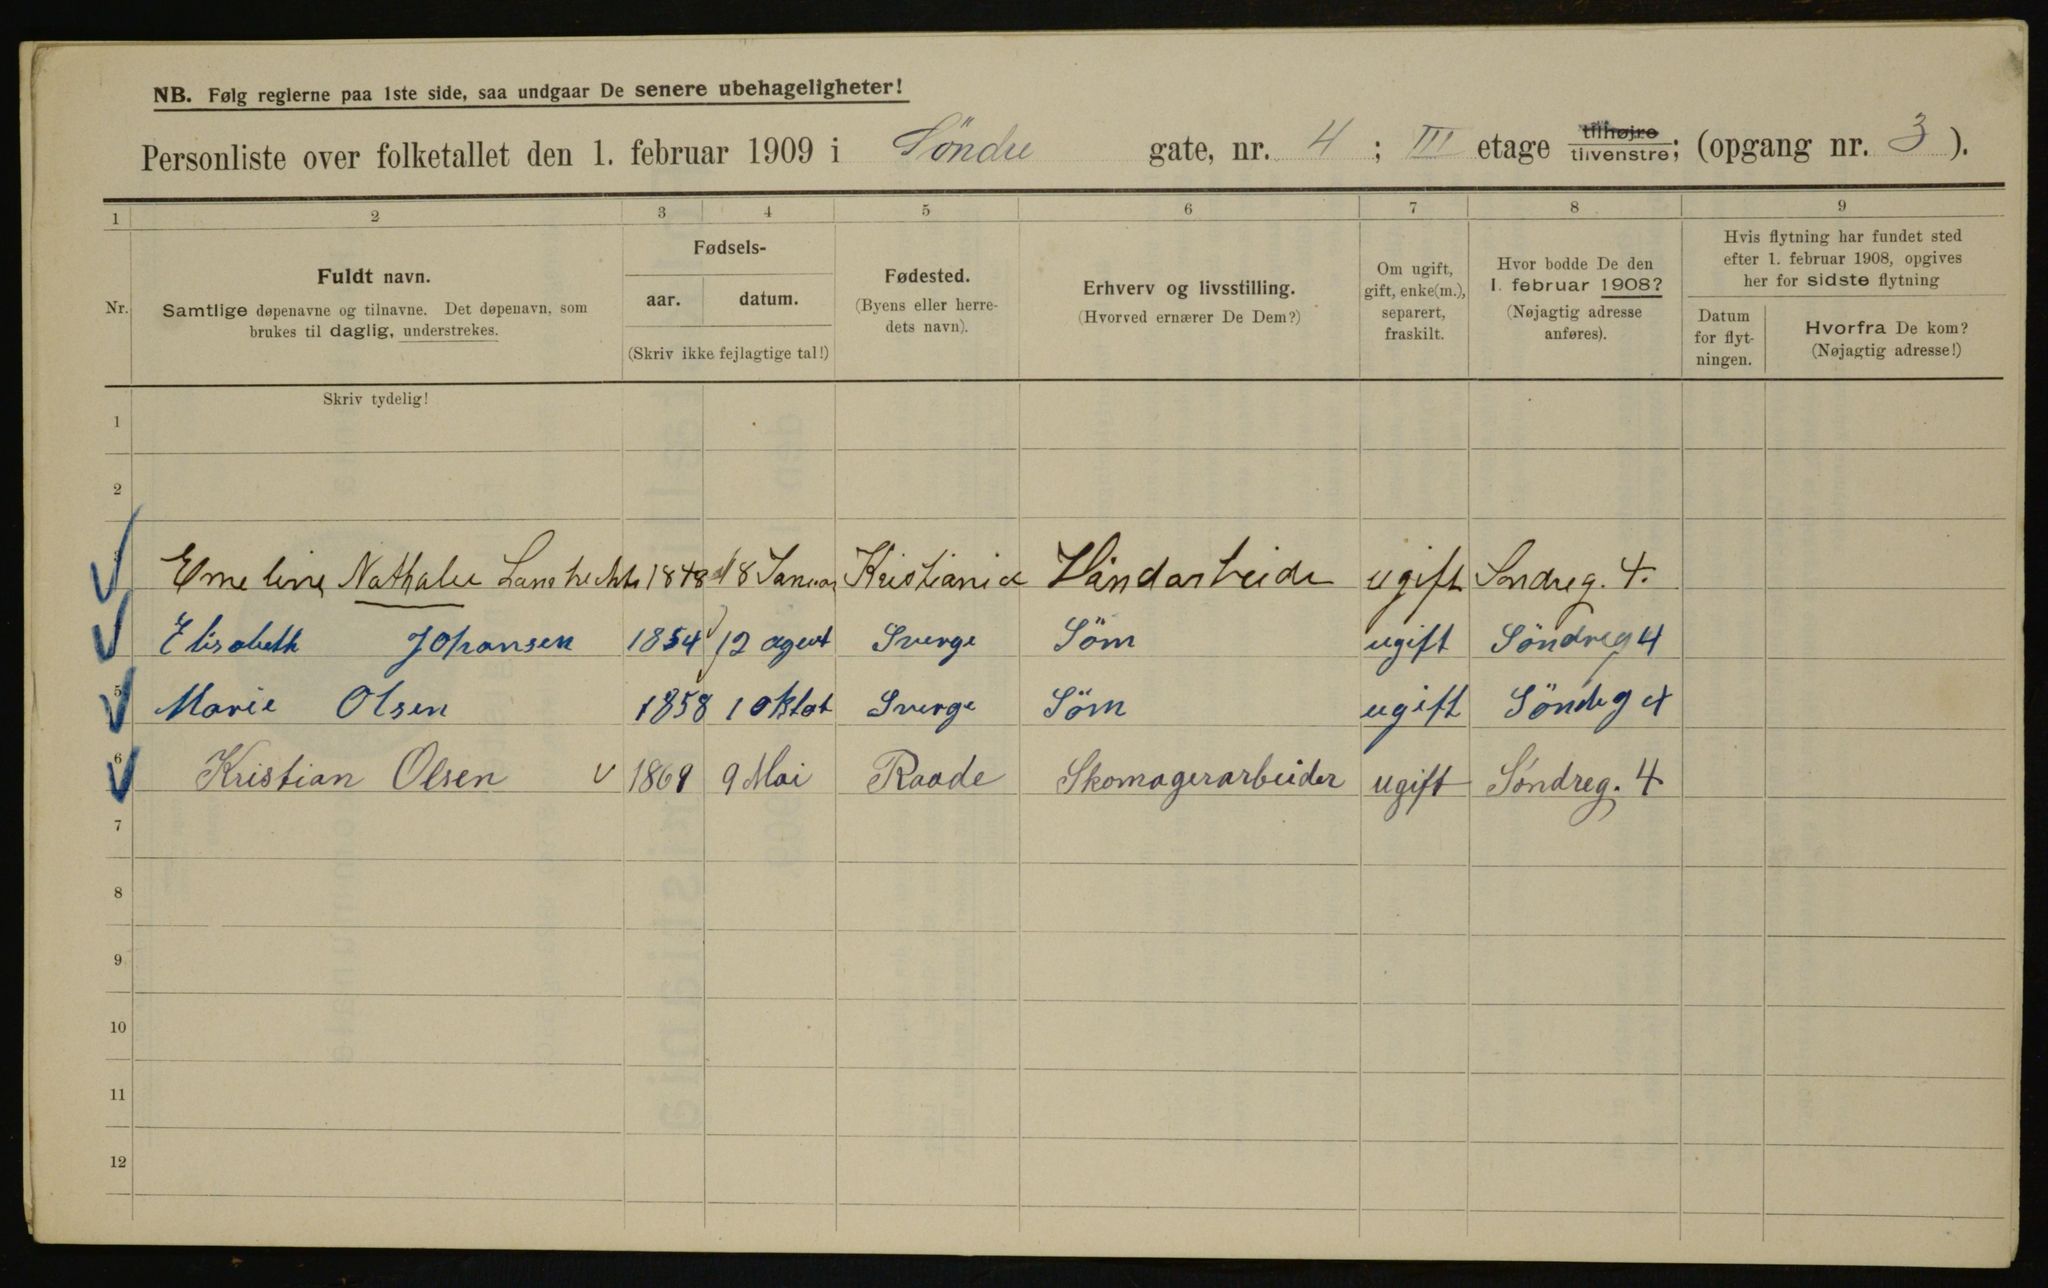 NB. Følg reglerne paa 1ste side, saa undgaar De senere ubehageligheter!
Personliste over folketallet den 1. februar 1909 i Söndre gate, nr. 4 ; III etage tilhøjre tilvenstre; (opgang nr. 3 ).
1 2 3 4 5 6 7 8 9
Nr.
Fuldt navn.
Samtlige døpenavne og tilnavne. Det døpenavn, som
brukes til daglig, understrekes.
Fødsels-
aar. datum.
(Skriv ikke fejlagtige tal!)
Fødested.
(Byens eller herre-
dets navn).
Erhverv og livsstilling.
(Hvorved ernærer De Dem?)
Om ugift,
gift, enke(m.),
separert,
fraskilt.
Hvor bodde De den
1. februar 1908?
(Nøjagtig adresse
anføres).
Hvis flytning har fundet sted
efter 1. februar 1908, opgives
her for sidste flytning
Datum
for flyt-
ningen.
Hvorfra De kom?
(Nøjagtig adresse!)
Skriv tydelig!
1
2
3 Emeline Nathalie 1848 18 Januar Kristiania Håndarbeide ugift Söndreg. 4.
Elisabeth Johansen 1854 12 agust Sverge Söm ugift Söndreg 4
5 Marie Olsen 1858 1 oktot Sverge Söm ugift Söndeg 4
6 Kristian Olsen v 1869 9 Mai Raade Skomagerarbeider ugift Söndreg. 4
7
8
9
10
11
12